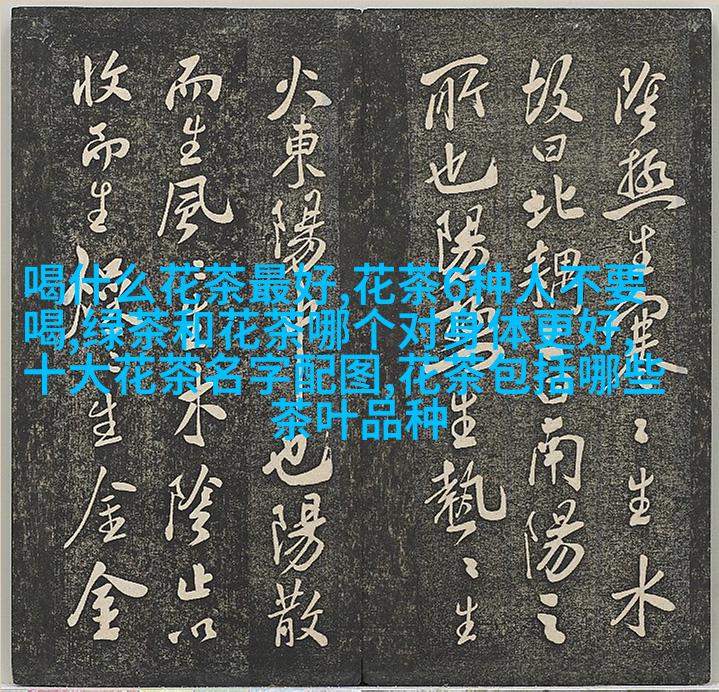 喝什么花茶最好,花茶6种人不要
喝,绿茶和花茶哪个对身体更好,
十大花茶名字配图,花茶包括哪些
茶叶品种
陰極生寒〻生水
故曰北耦曰南陽之
所也陽生熱〻生
火東陽也陽散
而生風〻生木陰止以
收而生燥〻生金金